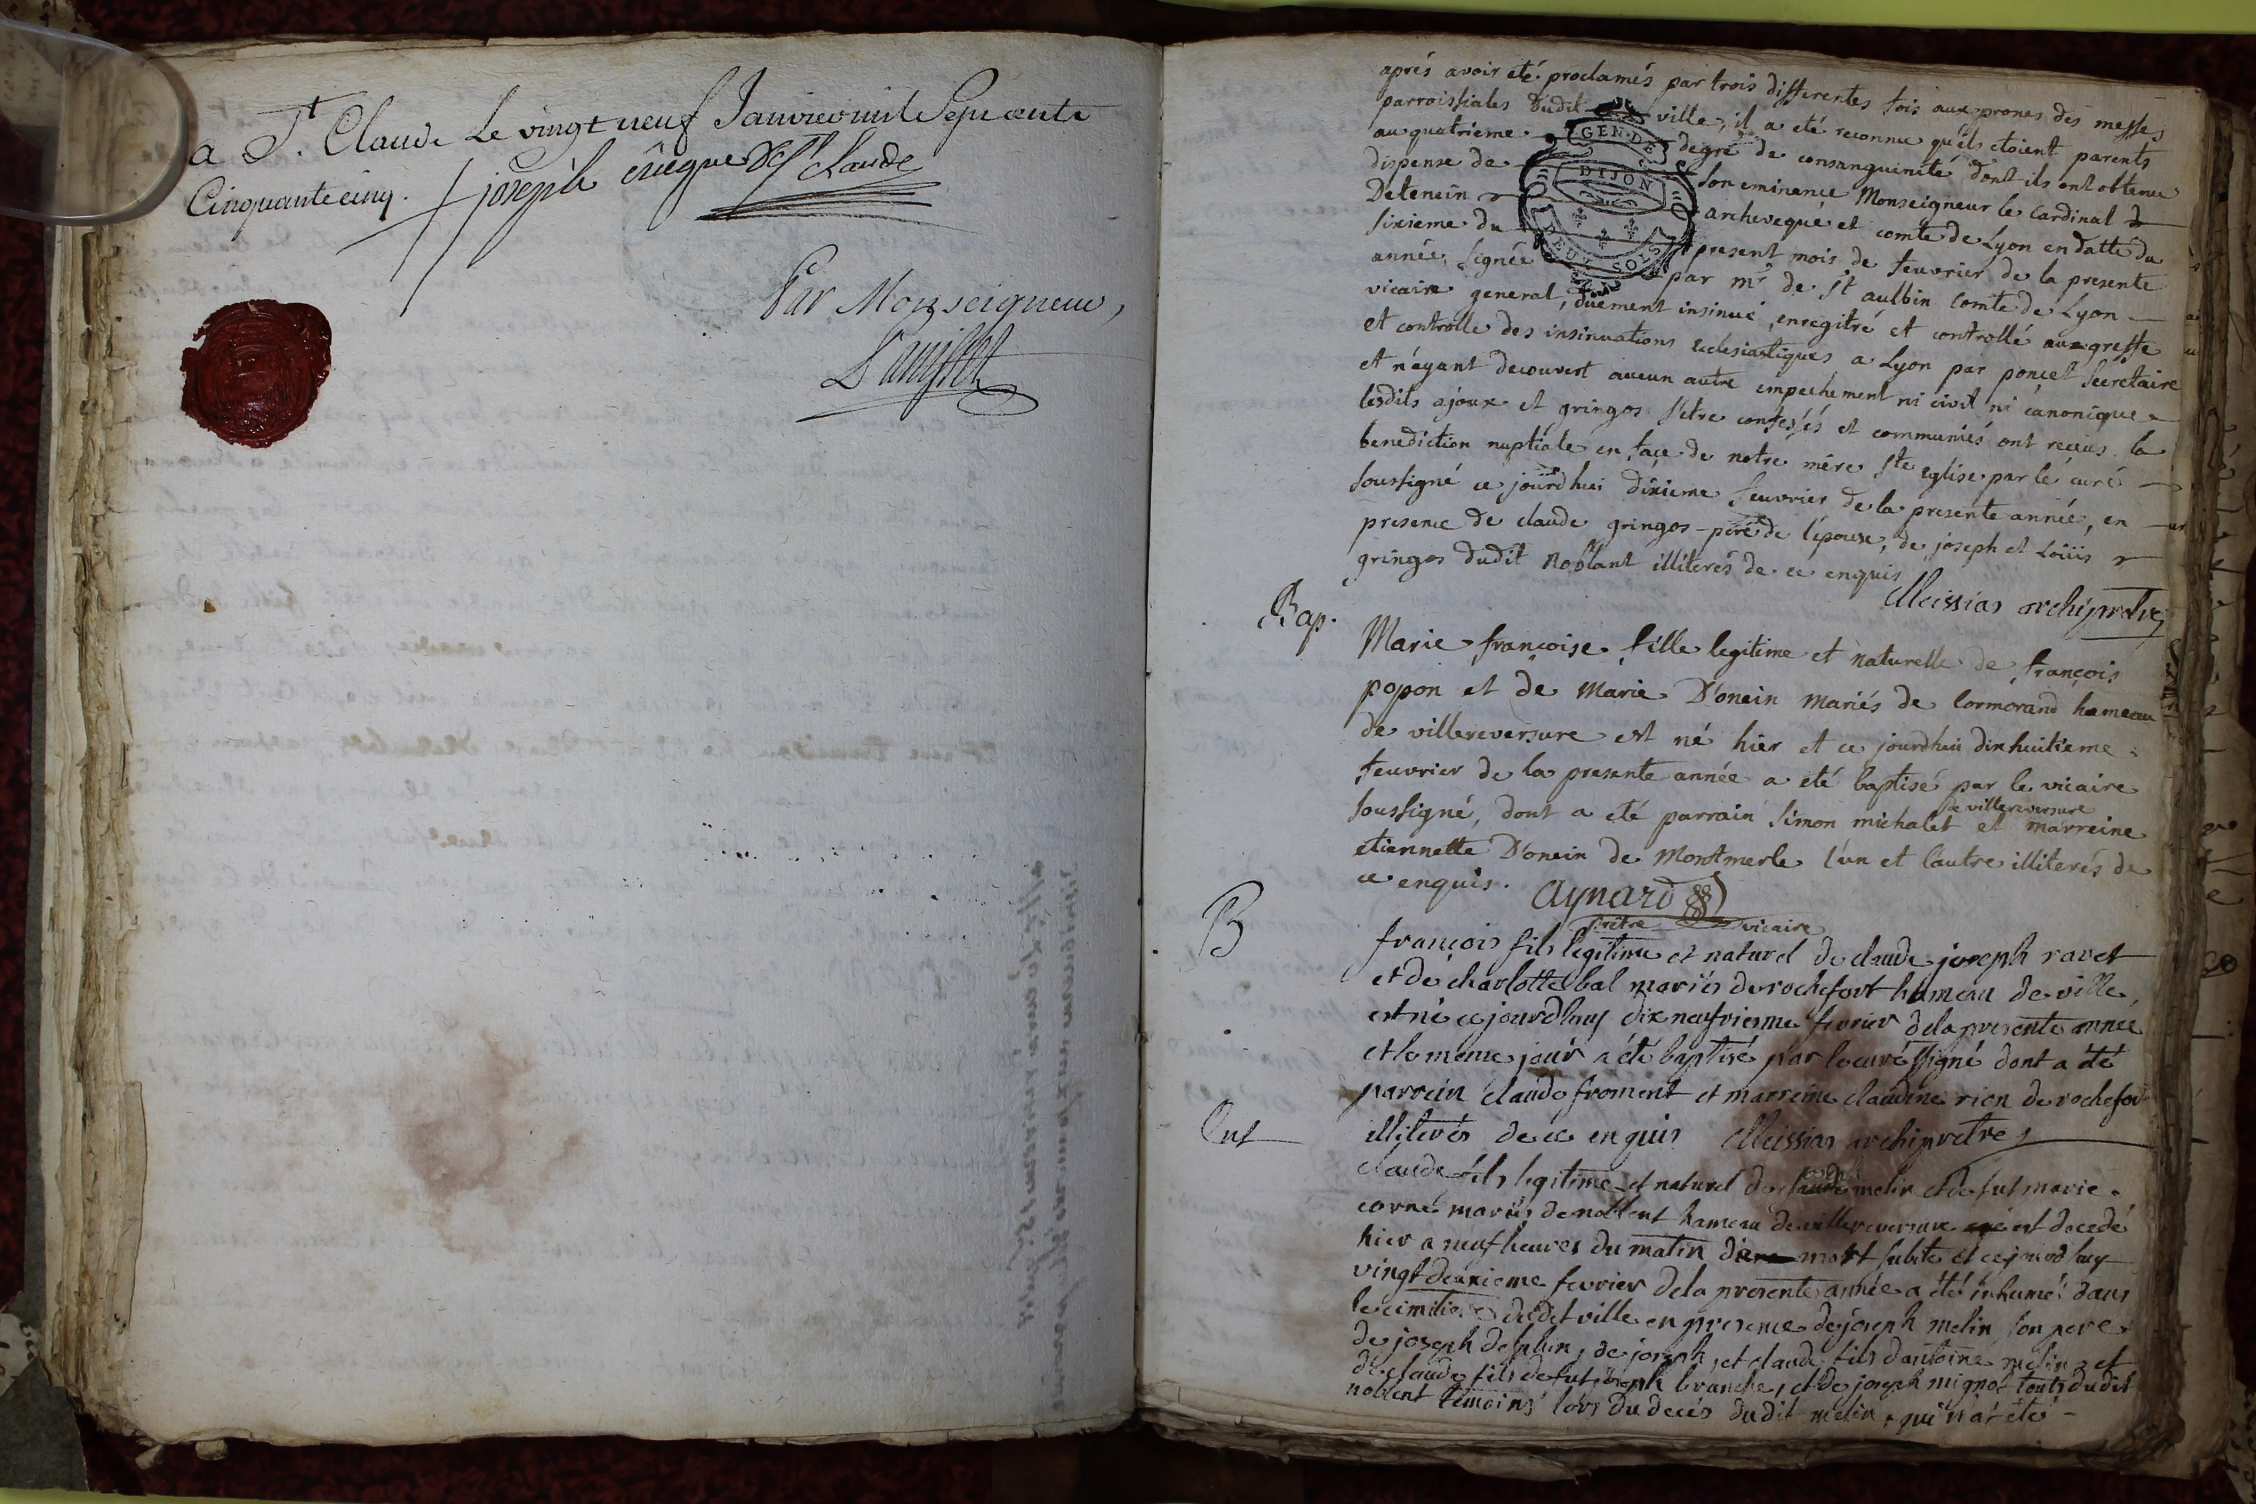 a St. Claude Le vingt neuf Janvier mil Sept cents
Cinquante cinq. + joseph évêque De St Claude
Par Monseigneur,
aprés avoir été proclamés par trois differentes fois aux prones des messes
parroissiales dudit ville, il a eté reconnu qu'ils etoient parents
au quatrieme degré de consanguinité dont ils ont obtenu
dispense de son eminence Monseigneur le Cardinal
De tencin archeveque et comte de Lyon en datte du
sixieme du present mois de feuvrier de la presente
année, signée par mr de St aulbin Comte de Lyon
vicaire general, duement insinué, enregitré et controllé aux greffe
et controlle des insinuations Eclesiastiques a Lyon par poncet Secrétaire
et n'ayant decouvert aucun autre empechement ni civil ni canonique
lesdits ajoux et gringos s'etre confessés et communiés ont recus la
benediction nuptiale en face de notre mére Ste eglise par le curé
soussigné ce jourdhui dixieme feuvrier de la presente année, en
presence de claude gringos pere de l'epouse, de joseph et Loüis
gringos dudit Noblant illiterés de ce enquis
Meissias archiprêtre
GEN. DE
DIJON
DEUX SOLS
Bap.
Marie françoise fille legitime et naturelle de françois
popon et de Marie D'onein mariés de Cormorand hameau
de villereversure est né hier et ce jourdhui dixhuitieme
feuvrier de la presente année a eté baptisé par le vicaire
soussigné, dont a eté parrain Simon michalet de villereversure et marreine
etiennette D'onein de Montmerle l'un et l'autre illiterés de
ce enquis. Aynard
prêtre vicaire
B
françois fils legitime et naturel de claude joseph ravet
et de charlotte bal mariés de rochefort hameau de ville
est né ce jourdhuy dix neufviesme fevrier dela presente année
et le meme jour a été baptisé par le curé ssigné dont a été
parrein claude froment et marreine claudine rion de rochefort
illiterés de ce enquis Meissias archiprêtre
Ent
claude fils legitime et naturel de joseph melin et de fut marie
corne mariés de noblent hameau de villereversure est decedé
hier a neuf heures du matin de mort subite et ce jourdhuy
vingt deuxieme fevrier dela presente année a été inhumé dans
le cimitiere dudit ville en presence de joseph melin son pere
de joseph delphin, de joseph, et claude fils d'antoine melin, et
de claude fils de fut joseph branche, et de joseph mignot touts dudit
noblent témoins lors du decés dudit melin, qui n'a été